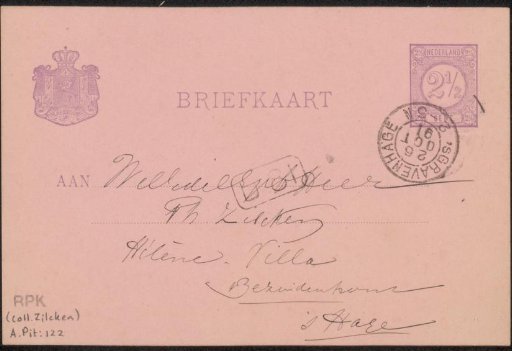 NEDERLAND
2 1/2
BRIEFKAART
'S GRAVENHAGE
26
OCT
91
AAN Weledelgeb Heer
Ph Zilcken
Hélène-Villa
Bezuidenhout
's Hage
RPK
(coll. Zilcken)
A. Pit: 122